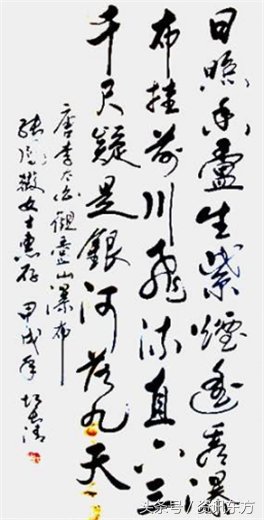 日照香盧生紫煙遥看瀑
布挂前川飛流直下三
千尺疑是銀河落九天
唐李太白觀盧山瀑布
女士惠存 甲戌年
头条号／资讯东方